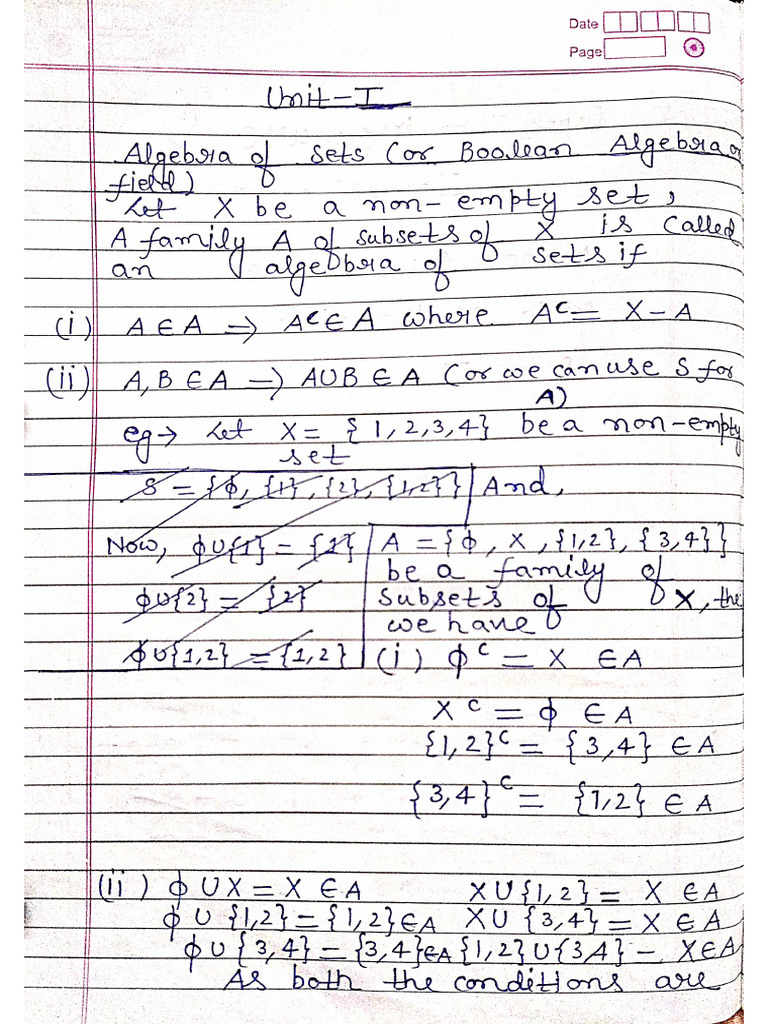 Date
Page
Unit-I
Algebra of sets (or Boolean Algebra or
field)
Let X be a non-empty set,
A family A of subsets of X is called
an algebra of sets if
(i) A ∈ A ⇒ Aᶜ ∈ A where Aᶜ = X - A
(ii) A, B ∈ A → A∪B ∈ A (or we can use S for
A)
eg → Let X = {1,2,3,4} be a non-empty
set
S = {ϕ, {1}, {2}, {1,2}} And,
Now, ϕ∪{1} = {1} A = {ϕ, X, {1,2}, {3,4}}
be a family of
ϕ∪{2} = {2} subsets of X, the
we have
ϕ∪{1,2} = {1,2} (i) ϕᶜ = X ∈ A
Xᶜ = ϕ ∈ A
{1,2}ᶜ = {3,4} ∈ A
{3,4}ᶜ = {1,2} ∈ A
(ii) ϕ∪X = X ∈ A X∪{1,2} = X ∈ A
ϕ∪{1,2} = {1,2} ∈ A X∪{3,4} = X ∈ A
ϕ∪{3,4} = {3,4} ∈ A {1,2}∪{3,4} - X ∈ A
As both the conditions are